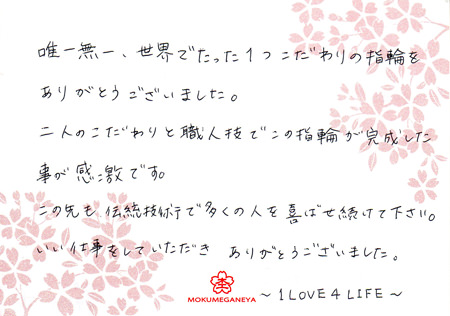 唯一無一、世界でたった1つこだわりの指輪を
ありがとうございました。
二人のこだわりと職人技でこの指輪が完成した
事が感激です。
この先も伝統技術で多くの人を喜ばせ続けて下さい。
いい仕事をしていただき ありがとうございました。
杢
MOKUMEGANEYA
〜1LOVE4LIFE〜